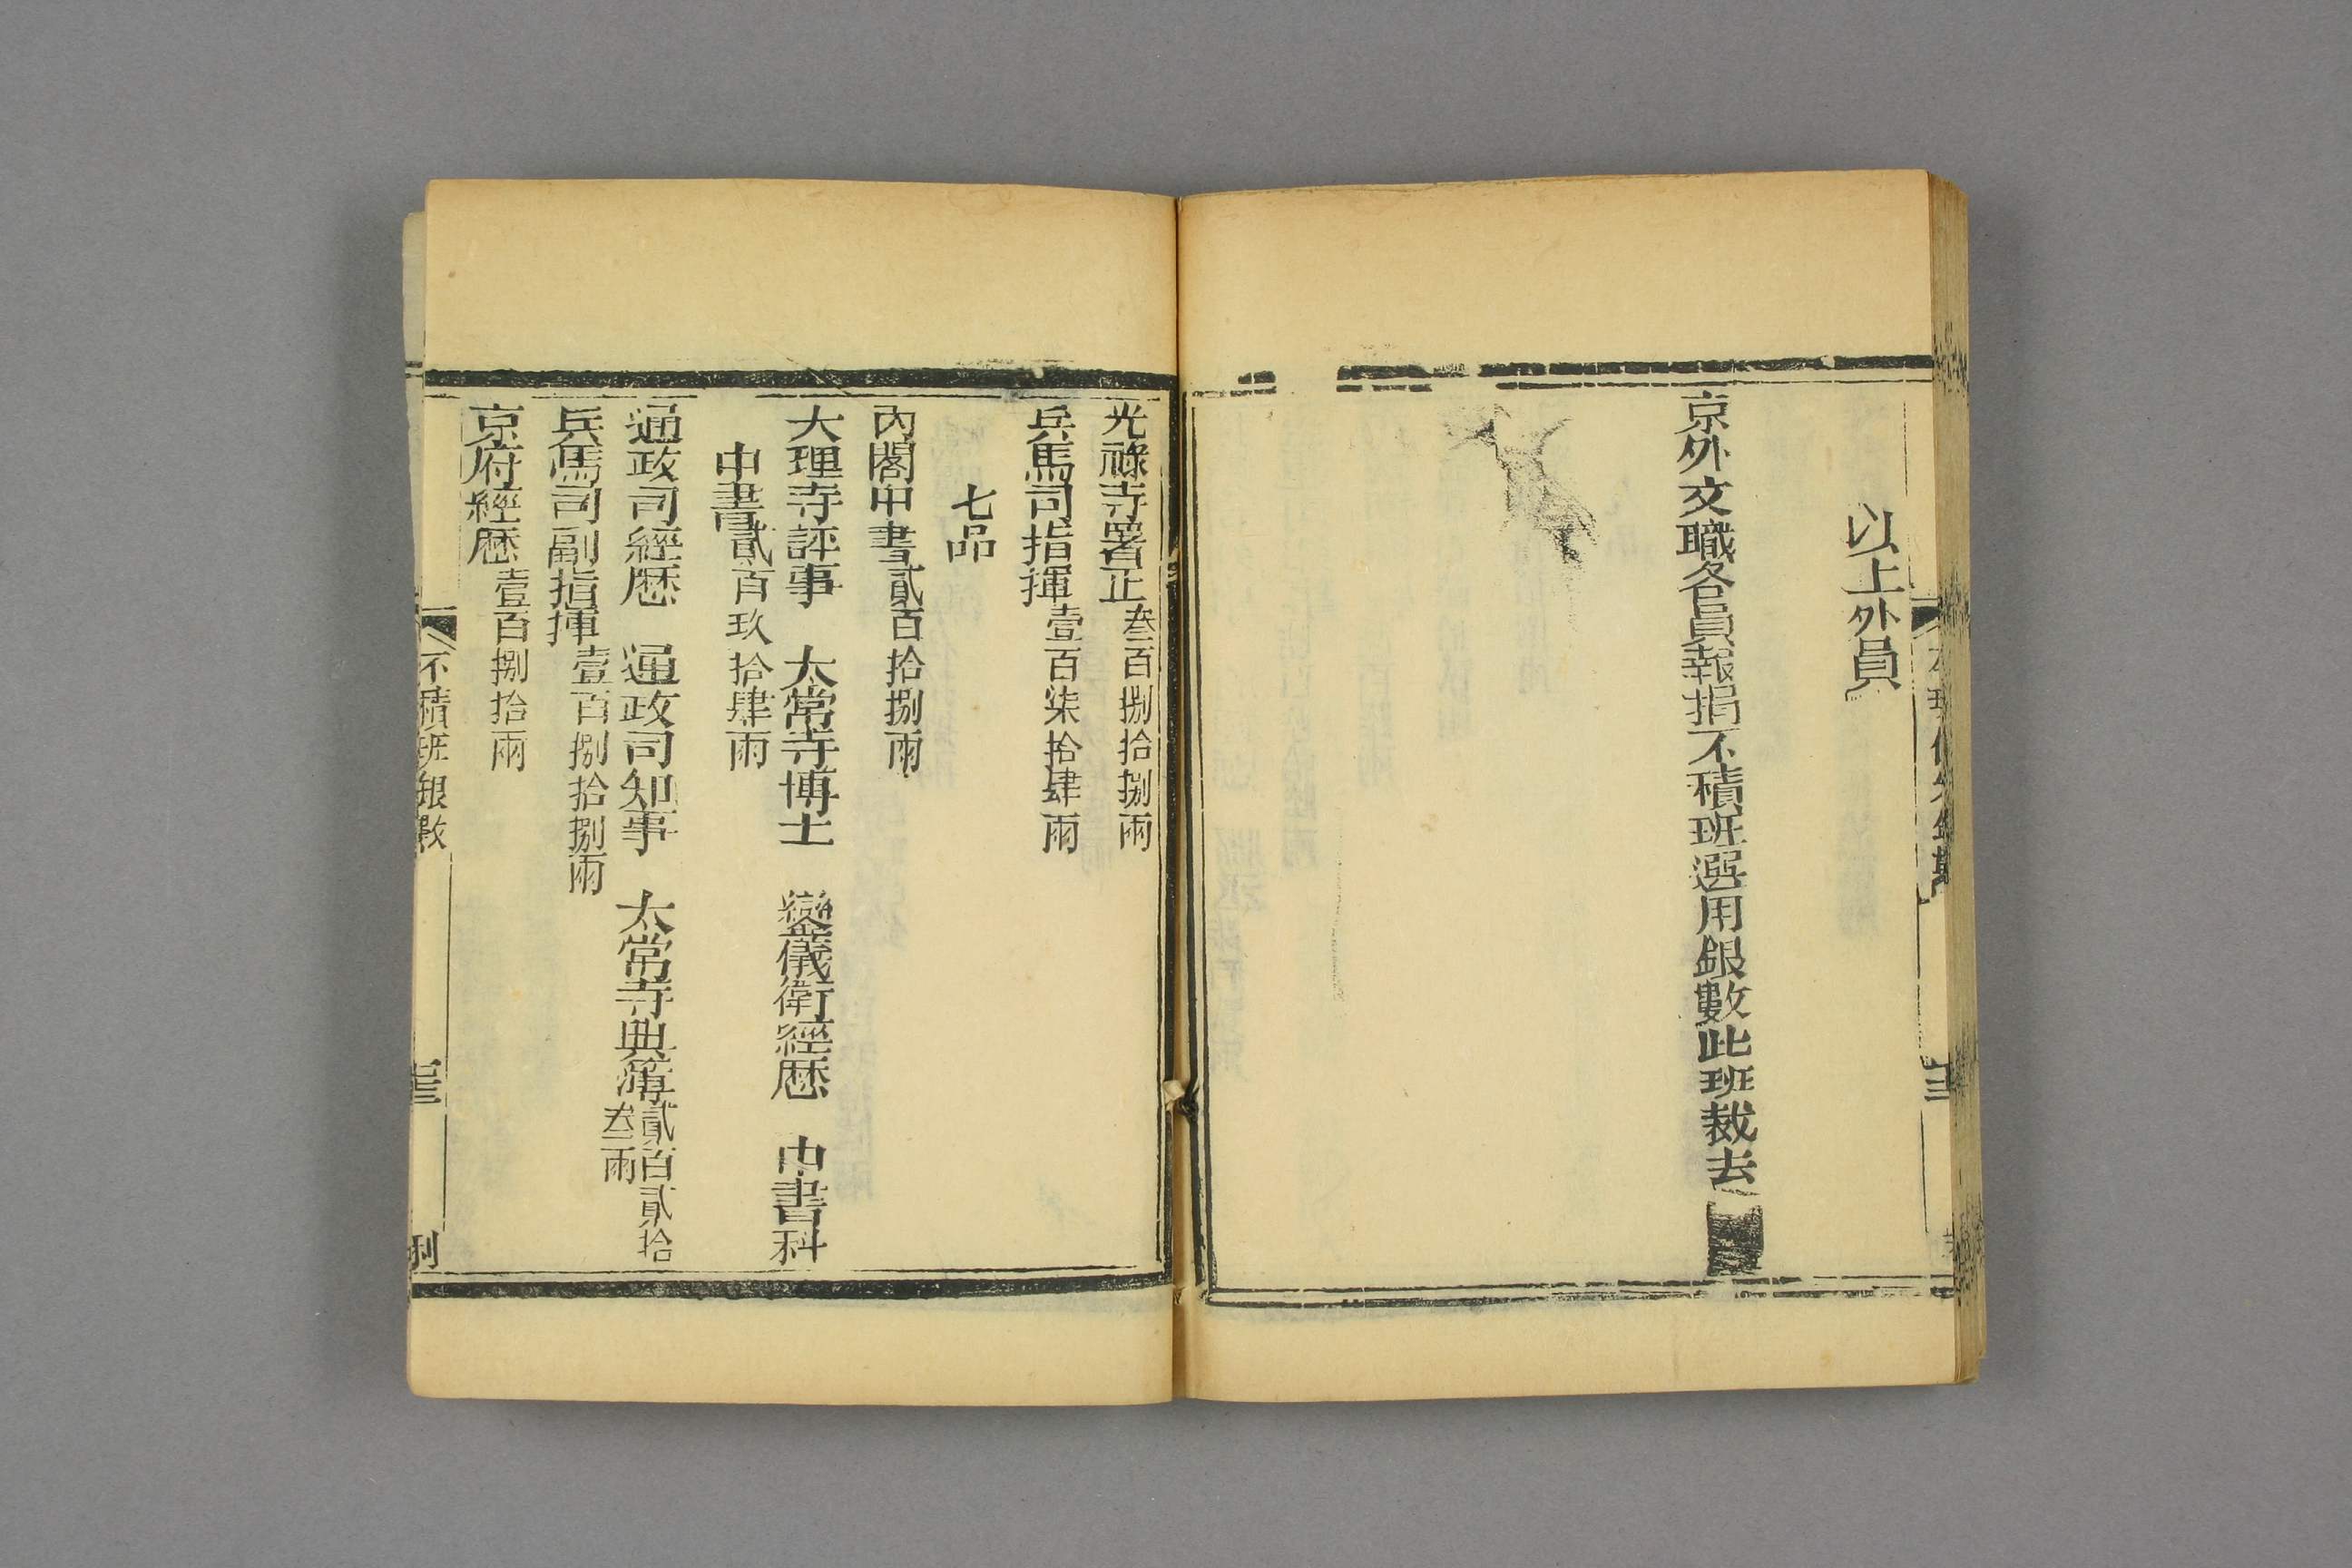 以上外員
京外文職各員報捐不積班選用銀數此班裁去
光祿寺署正叁百捌拾捌兩
兵馬司指揮壹百柒拾肆兩
七品
內閣中書貳百拾捌兩
大理寺評事　太常寺博士　鑾儀衛經歷　中書科
中書貳百玖拾肆兩
通政司經歷　通政司知事　太常寺典簿貳百貳拾叁兩
兵馬司副指揮壹百捌拾捌兩
京府經歷壹百捌拾兩
不積班銀數